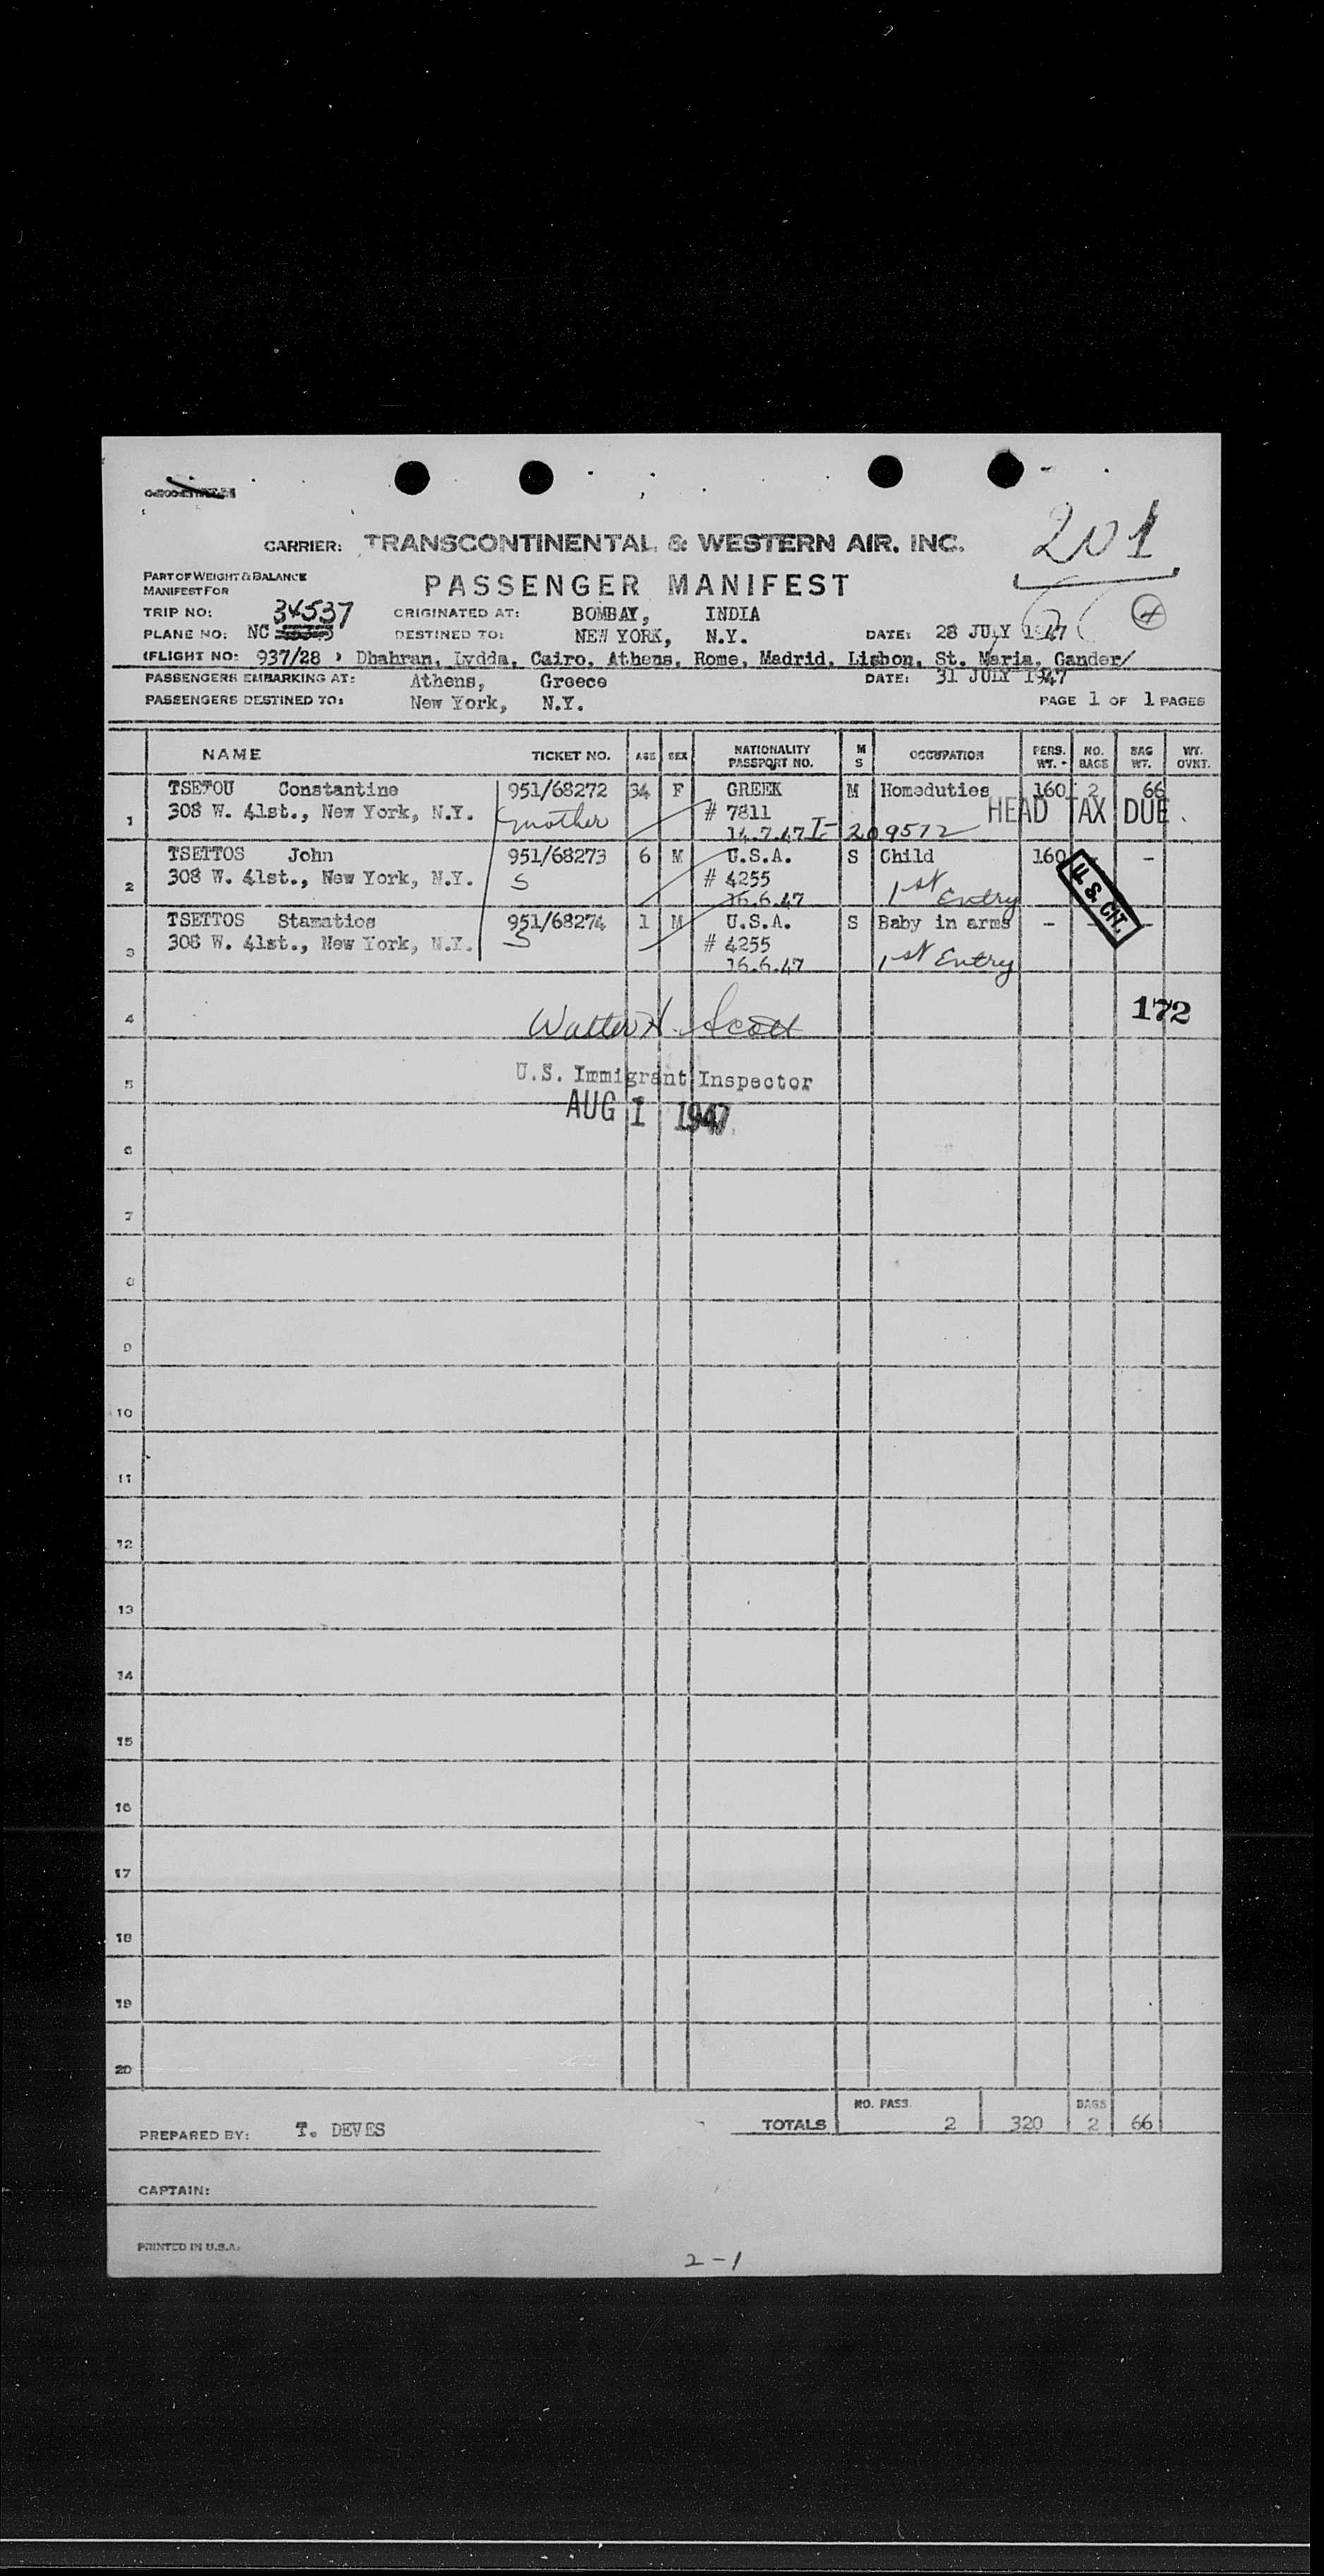 201
CARRIER: TRANSCONTINENTAL & WESTERN AIR, INC.
PART OF WEIGHT & BALANCE
MANIFEST FOR
PASSENGER MANIFEST
TRIP NO: 34537 ORIGINATED AT: BOMBAY, INDIA
PLANE NO: NC DESTINED TO: NEW YORK, N.Y. DATE: 28 JULY 1947 4
(FLIGHT NO: 937/28 ) Dhahran, Lydda, Cairo, Athens, Rome, Madrid, Lisbon, St. Maria, Gander/
PASSENGERS EMBARKING AT: Athens, Greece DATE: 31 JULY 1947
PASSENGERS DESTINED TO: New York, N.Y. PAGE 1 OF 1 PAGES
NAME TICKET NO. AGE SEX NATIONALITY PASSPORT NO. M S OCCUPATION PERS. WT. NO. BAGS BAG WT. WT. OVNT.
TSETOU Constantine 951/68272 34 F GREEK M Homeduties 160 2 66
1 308 W. 41st., New York, N.Y. mother # 7811 HEAD TAX DUE
14.7.47 I- 209572
TSETTOS John 951/68273 6 M U.S.A. S Child 160 - -
2 308 W. 41st., New York, N.Y. S # 4255 U.S. CIT.
16.6.47 1st Entry
TSETTOS Stamatios 951/68274 1 M U.S.A. S Baby in arms - - -
3 308 W. 41st., New York, N.Y. S # 4255
16.6.47 1st Entry
4 Walter H. Scott 172
5 U.S. Immigrant Inspector
AUG 1 1947
6
7
8
9
10
11
12
13
14
15
16
17
18
19
20
NO. PASS. BAGS
TOTALS 2 320 2 66
PREPARED BY: T. DEVES
CAPTAIN:
PRINTED IN U.S.A.
2-1